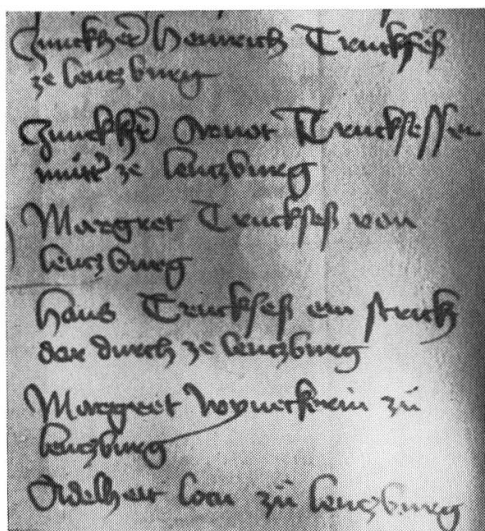 Junckher Heinrich Truckseß
ze lentzburg
Junckher Arnolt Trucksessen
ze lentzburg
Margret Truckseß von
lentzburg
Hans Truckseß ein strich
dar durch ze lentzburg
Margret zü
lentzburg
Adelheit zü lentzburg